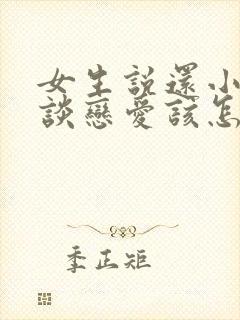 女生說還小
談戀愛該怎
季正矩